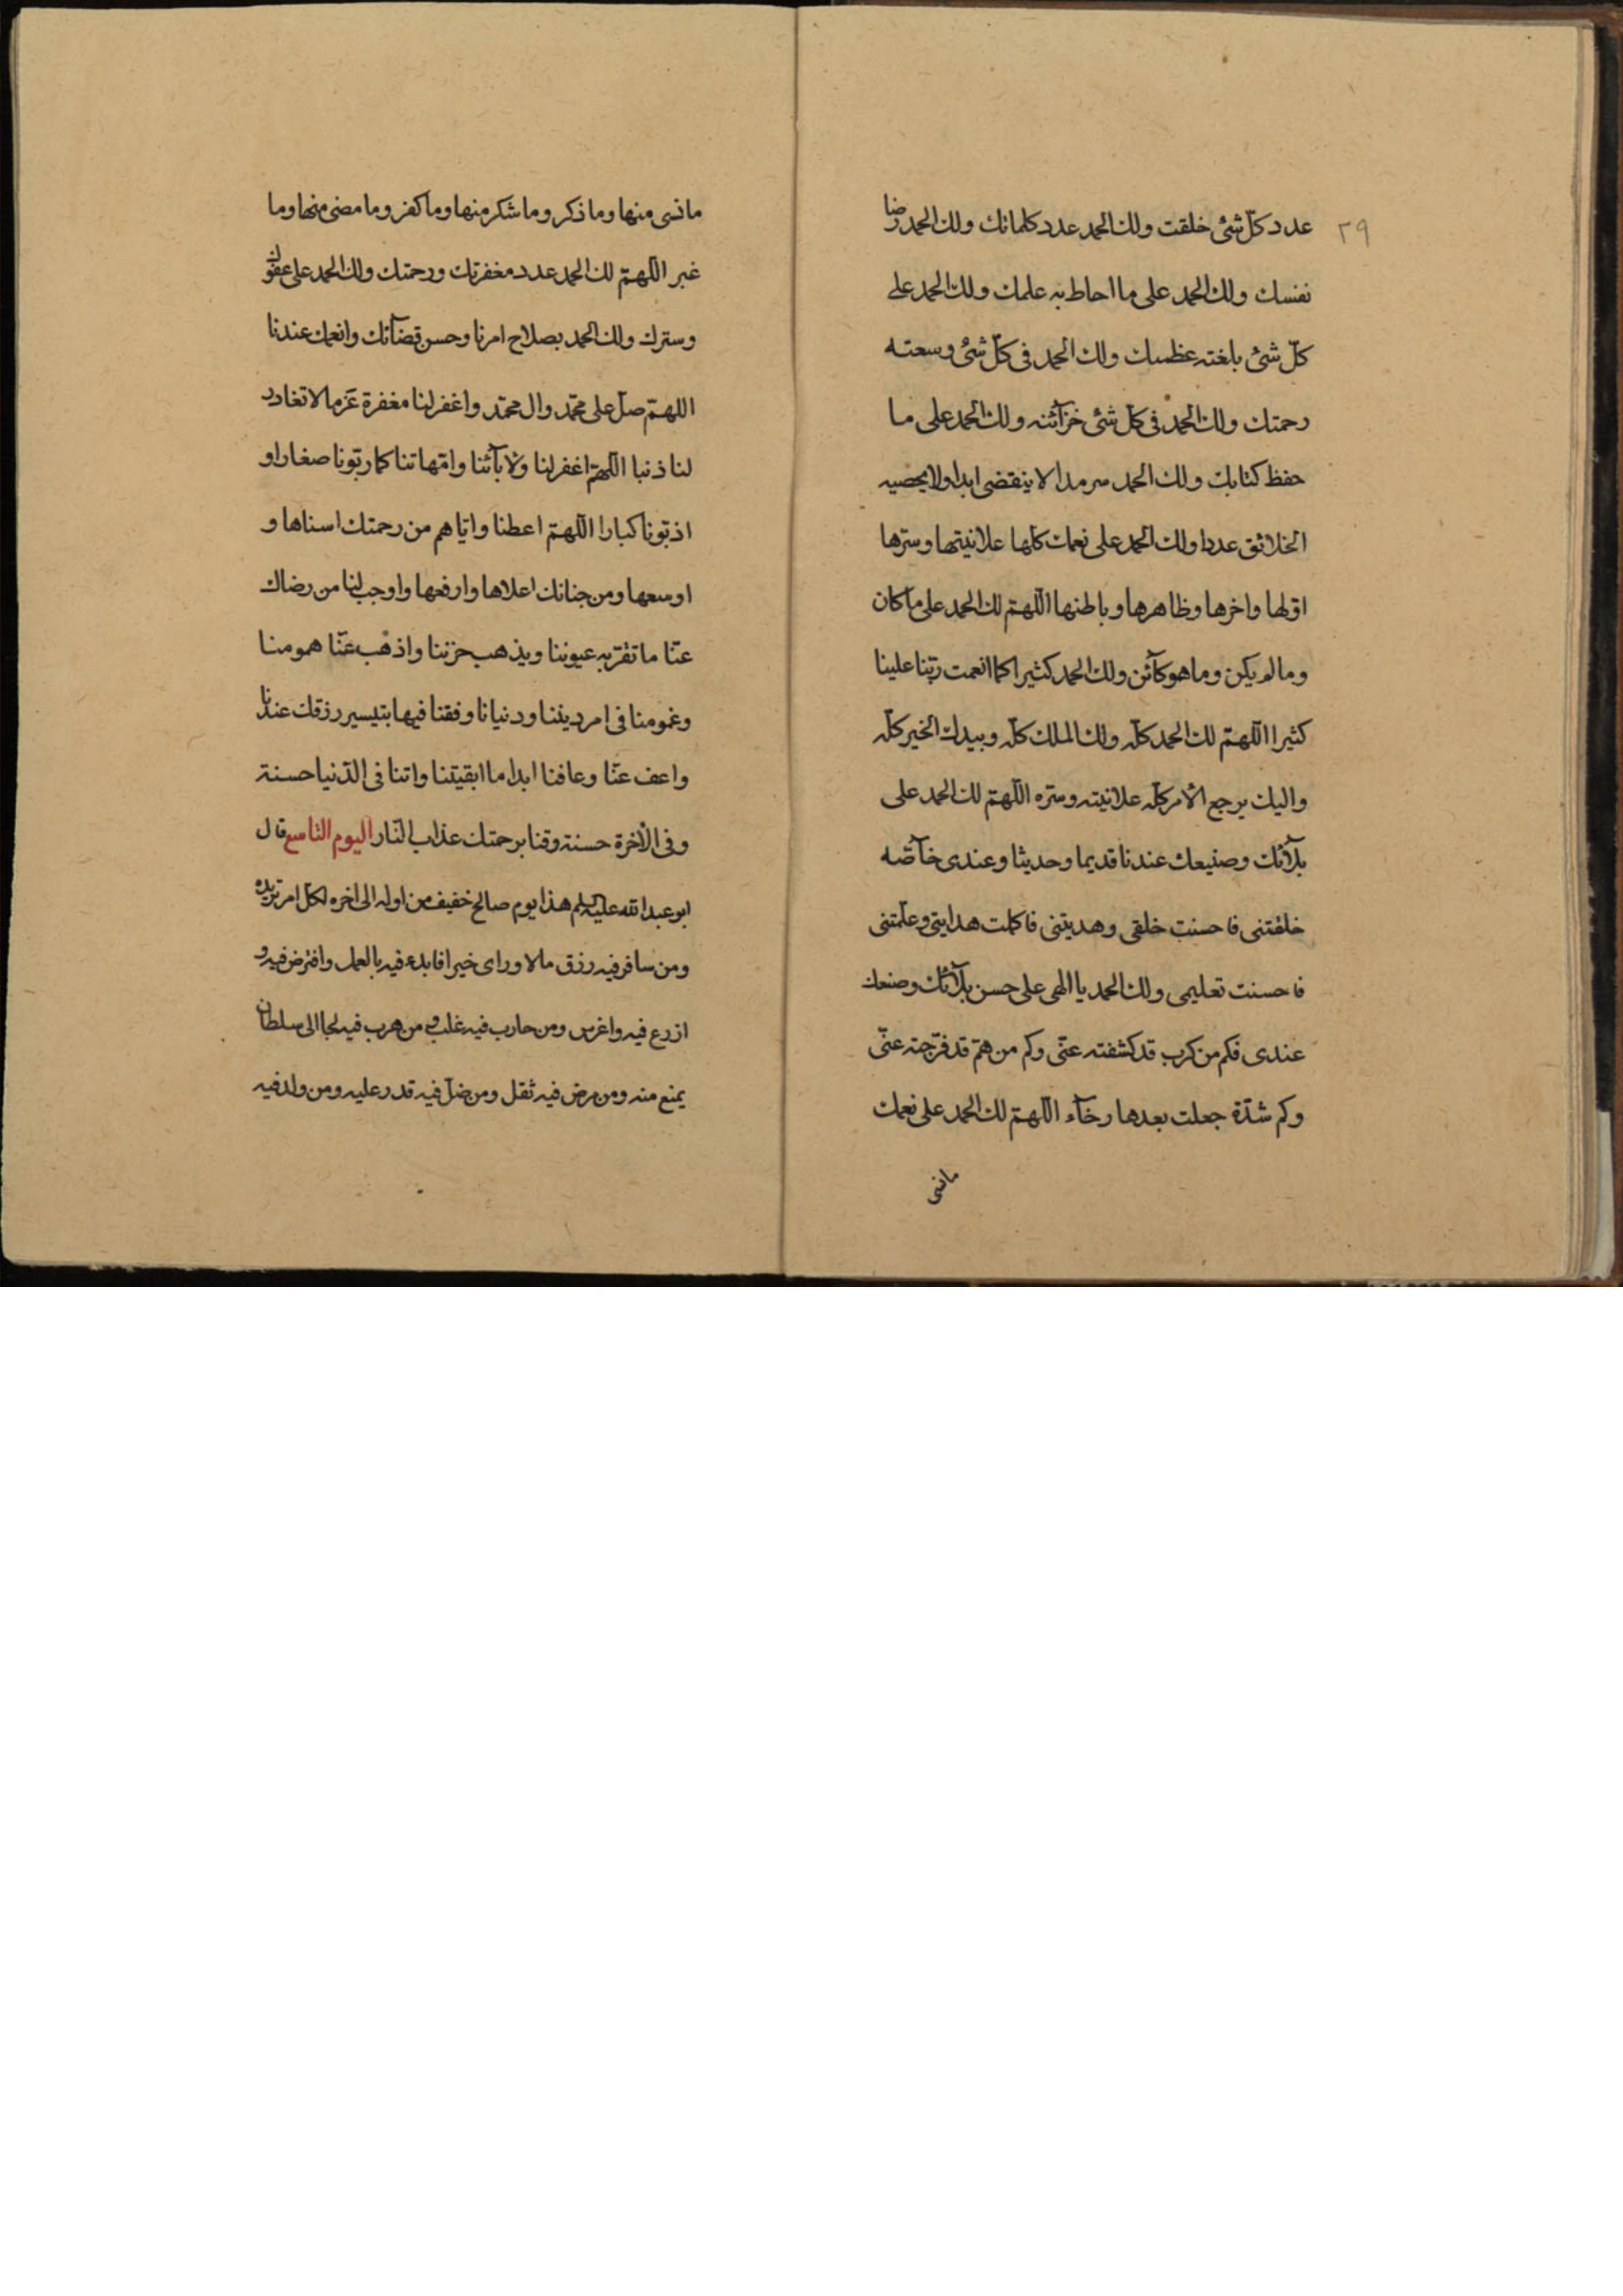 ٢٩
عدد كلّ شئ خلقت ولك الحمد عدد كلماتك ولك الحمد رضا
نفسك ولك الحمد على ما احاط به علمك ولك الحمد على
كلّ شئ بلغته عظمتك ولك الحمد فى كلّ شئ وسعته
رحمتك ولك الحمد فى كلّ شئ خزآئنه ولك الحمد على ما
حفظ كتابك ولك الحمد سرمدا لا ينقضى ابدا ولا يحصيه
الخلائق عددا ولك الحمد على نعمك كلّها علانيتها وسرّها
اوّلها واخرها وظاهرها وباطنها اللّهمّ لك الحمد على ما كان
وما لم يكن وما هو كآئن ولك الحمد كثيرا كما انعمت ربّنا علينا
كثيرا اللّهمّ لك الحمد كلّه ولك الملك كلّه وبيدك الخير كلّه
واليك يرجع الأمر كلّه علانيته وسرّه اللّهمّ لك الحمد على
بلآئك وصنيعك عندنا قديما وحديثا وعندى خآصّه
خلقتنى فاحسنت خلقى وهديتنى فاكملت هدايتى وعلّمتنى
فاحسنت تعليمى ولك الحمد يا الهى على حسن بلآئك وصنعك
عندى فكم من كرب قد كشفته عنّى وكم من همّ قد فرّجته عنّى
وكم شدّة جعلت بعدها رخآء اللّهمّ لك الحمد على نعمك
مانسى
مانسى منها وما ذكر وما شكر منها وما كفر وما مضى منها وما
غبر اللّهمّ لك الحمد عدد مغفرتك ورحمتك ولك الحمد على عفوك
وسترك ولك الحمد بصلاح امرنا وحسن قضآئك وانعمك عندنا
اللهمّ صلّ على محمّد وال محمّد واغفر لنا مغفرة عزما لا تغادر
لنا ذنبا اللّهمّ اغفر لنا ولأبآئنا وامّهاتنا كما ربّونا صغارا و
ادّبونا كبارا اللّهمّ اعطنا وايّاهم من رحمتك اسناها و
اوسعها ومن جنانك اعلاها وارفعها واوجب لنا من رضاك
عنّا ما تقرّ به عيوننا ويذهب حزننا واذهب عنّا همومنا
وغمومنا فى امر ديننا ودنيانا وفقنا فيها بتيسير رزقك عندنا
واعف عنّا وعافنا ابدا ما ابقيتنا واتنا فى الدّنيا حسنة
وفى الأخرة حسنة وقنا برحمتك عذاب النّار اليوم التاسع قال
ابو عبدالله عليه السلم هذا يوم صالح خفيف من اوله الى اخره لكلّ امر تريده
ومن سافر فيه رزق مالا وراى خيرا فابدء فيه بالعمل واقترض فيه و
ازرع فيه واغرس ومن حارب فيه غلب ومن هرب فيه لجا الى سلطان
يمنع منه ومن مرض فيه ثقل ومن ضلّ فيه قدر عليه ومن ولد فيه